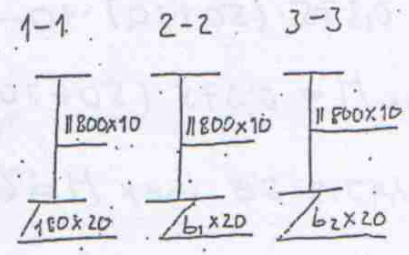 1-1 2-2 3-3
||800x10 ||800x10 ||800x10
/180x20 /b₁x20 /b₂x20